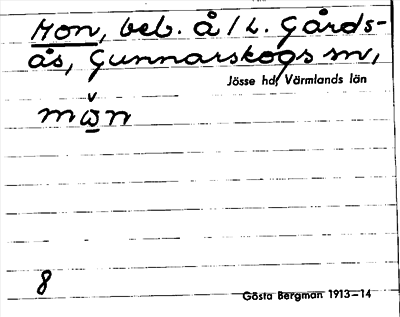 Mon, beb. å l L. Gårds-
ås, Gunnarskogs sn,
Jösse hd, Värmlands län
mω̲̌n
8
Gösta Bergman 1913–14